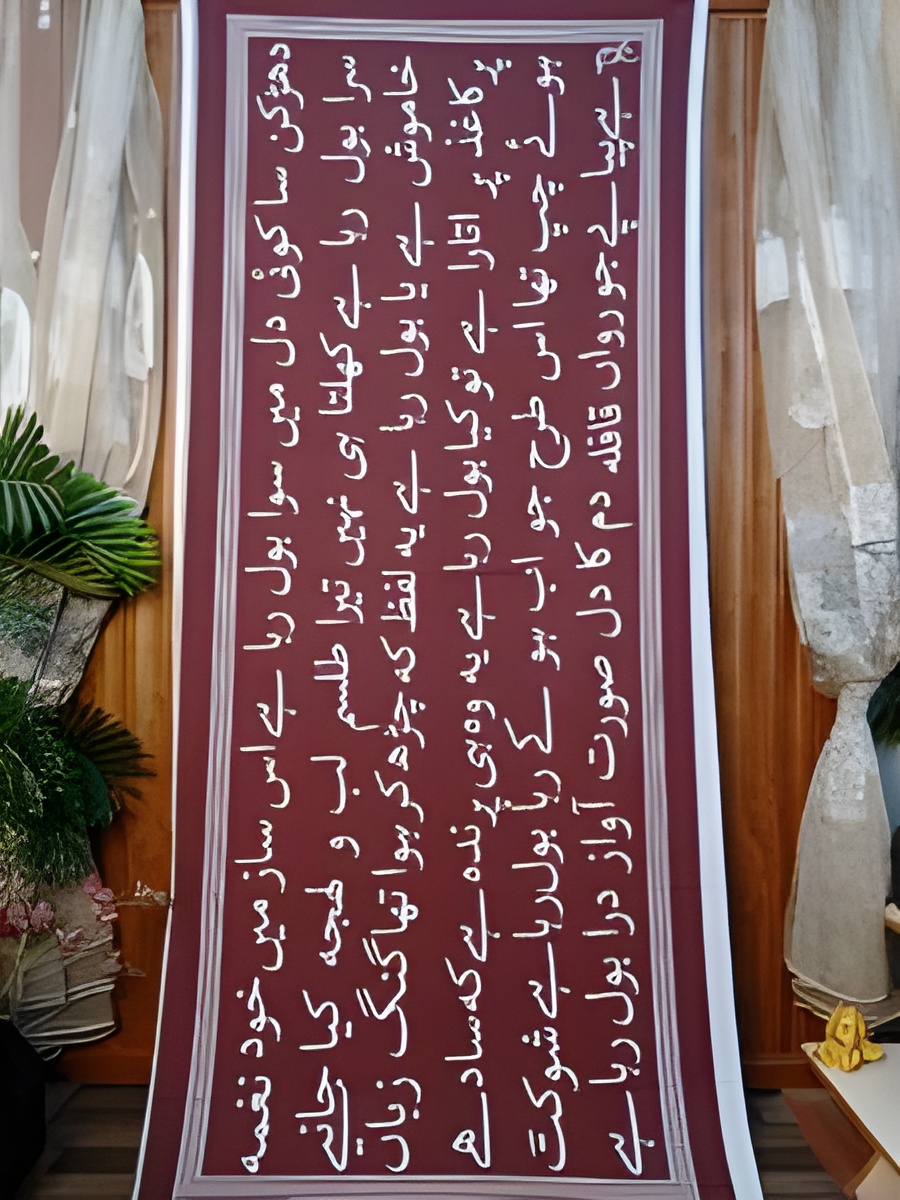 دھڑکن سا کوئی دل میں سوا بول رہا ہے اس ساز میں خود نغمہ
سرا بول رہا ہے کھلتا ہی نہیں تیرا طلسم لب و لہجہ کیا جانیے
خاموش ہے یا بول رہا ہے یہ لفظ کہ چڑھ کر ہوا تھا گنگ زباں
پر کاغذ پر اتارا ہے تو کیا بول رہا ہے یہ وہ ہی پرندہ ہے کہ سادھے
ہوئے چپ تھا اس طرح جو اب ہو کے رہا بول رہا ہے شوکت
ہے پیا پے جو رواں قافلہ دم کا دل صورت آواز درا بول رہا ہے